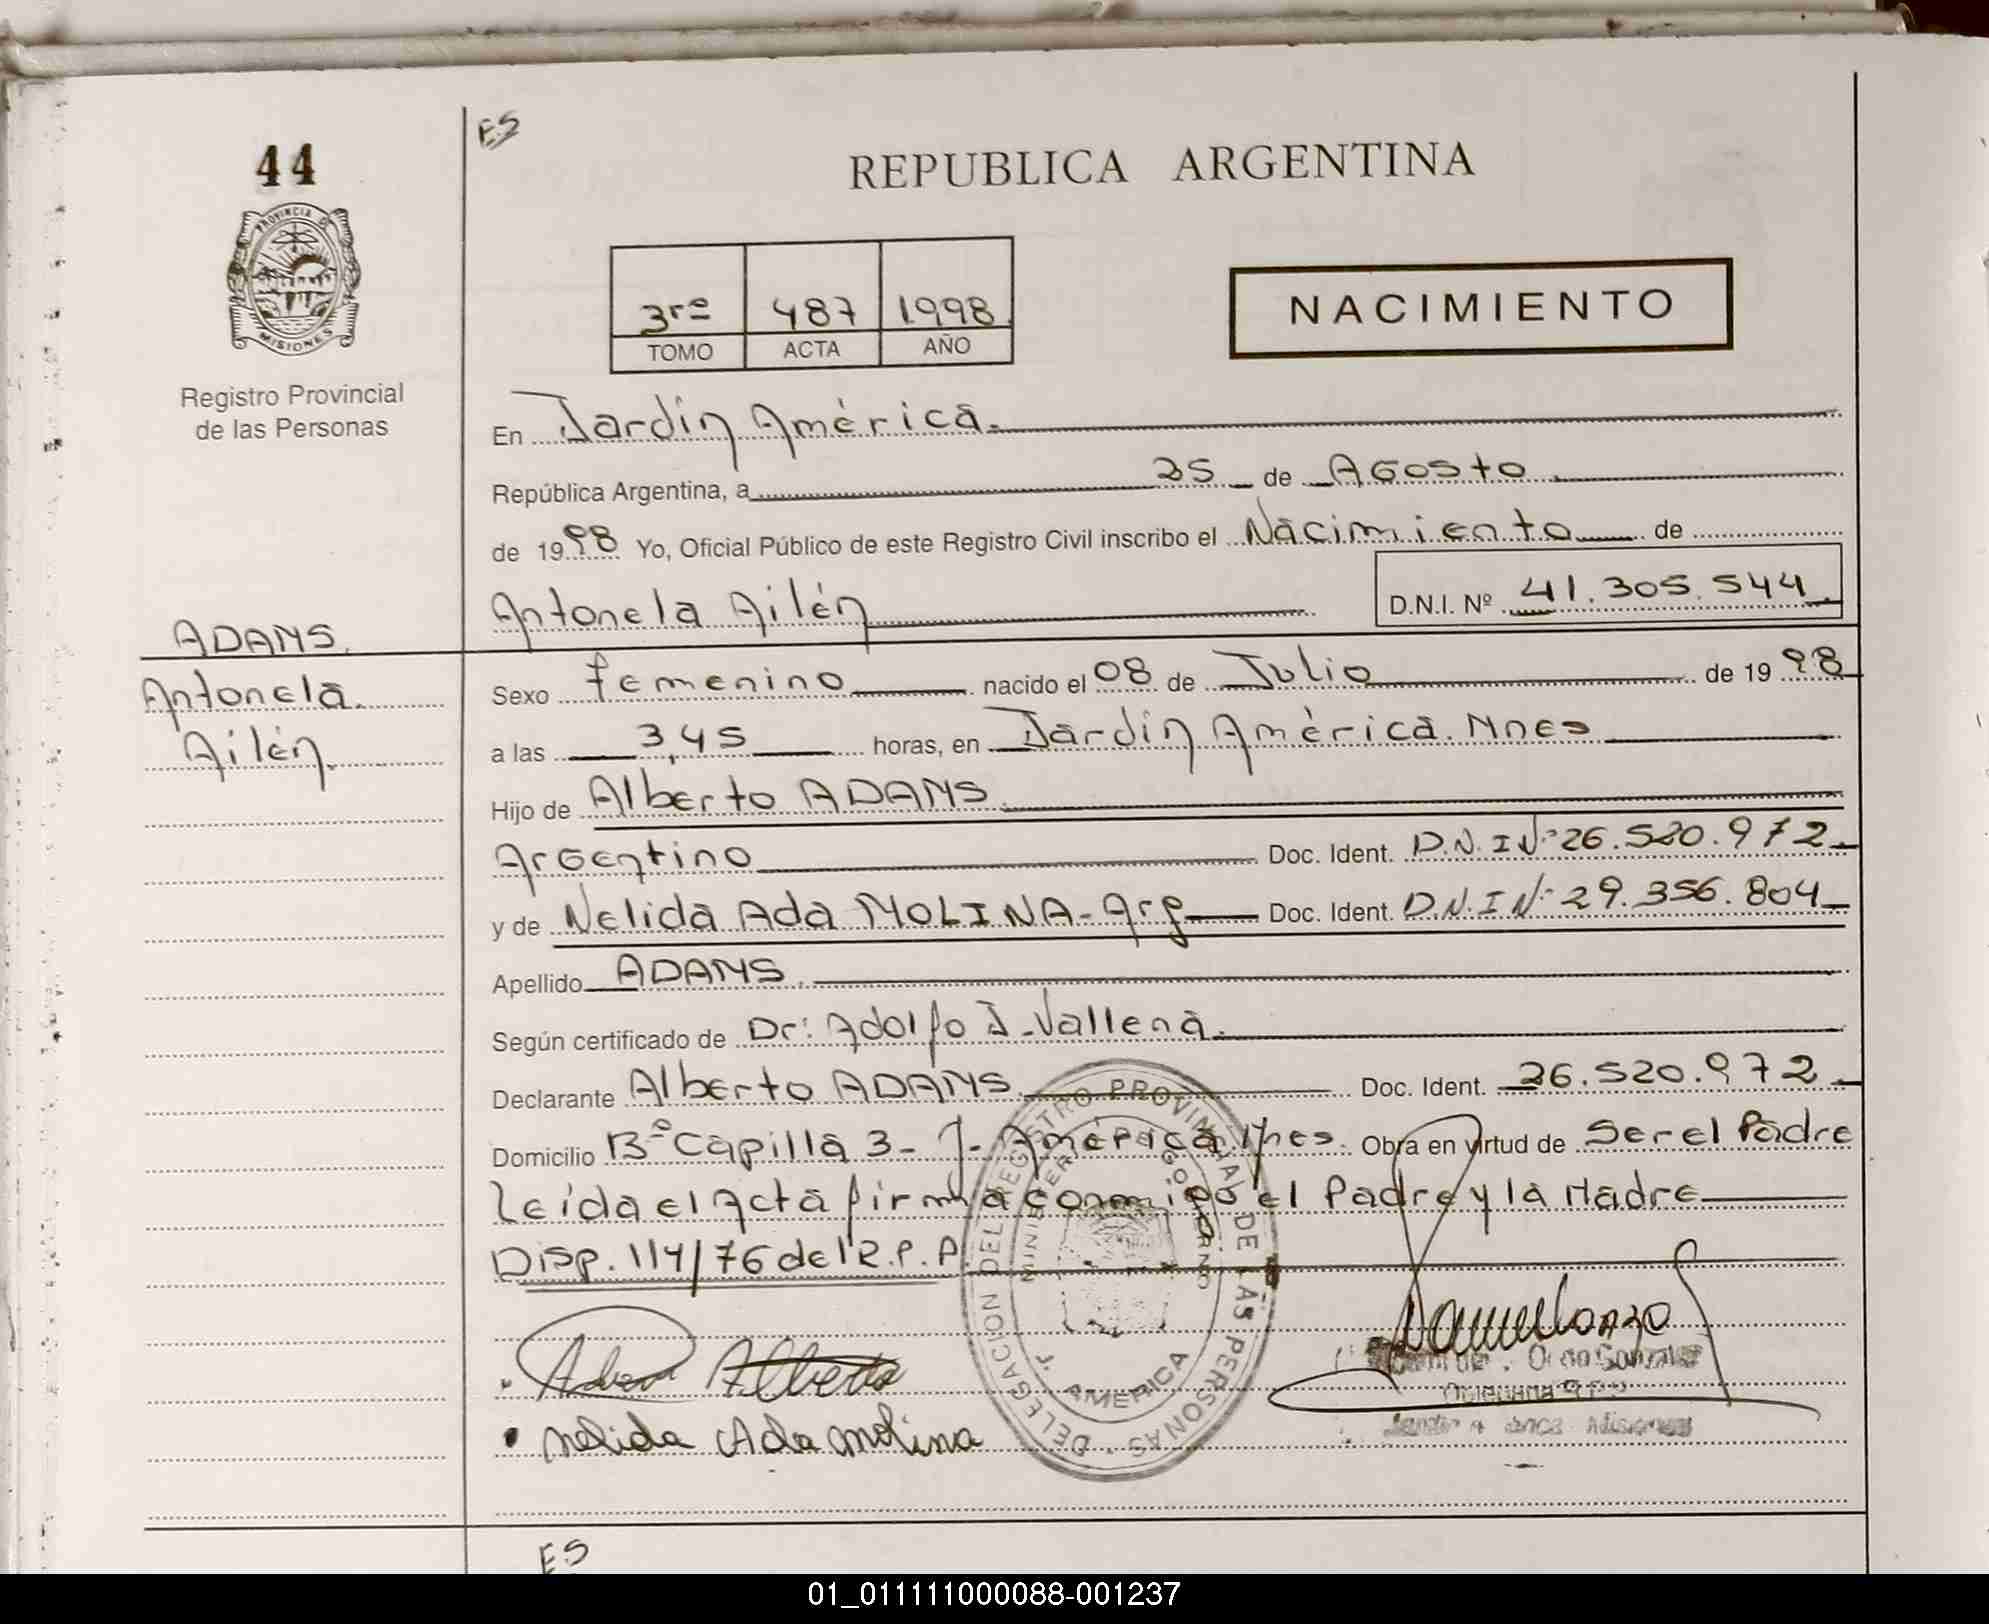 44
ES
REPUBLICA ARGENTINA
PROVINCIA DE
MISIONES
3ro 487 1998
TOMO ACTA AÑO
NACIMIENTO
Registro Provincial
de las Personas
En Jardín América.
República Argentina, a 25 de Agosto
de 1998 Yo, Oficial Público de este Registro Civil inscribo el Nacimiento de
Antonela Ailén D.N.I. Nº 41.305.544
ADAMS.
Antonela
Ailén.
Sexo femenino nacido el 08 de Julio de 1998
a las 3,45 horas, en Jardín América. Mnes
Hijo de Alberto ADAMS.
Argentino Doc. Ident. D.N.I N° 26.520.972
y de Nelida Ada MOLINA-Arg Doc. Ident. D.N.I N° 29.356.804
Apellido ADAMS.
Según certificado de Dr: Adolfo J. Vallena.
Declarante Alberto ADAMS. Doc. Ident. 26.520.972
Domicilio B° Capilla 3- J- América Mnes. Obra en virtud de Ser el Padre
Leída el Acta firma conmigo el Padre y la Madre
Disp. 114/76 del R.P.P.
DELEGACION DEL REGISTRO PROVINCIAL DE LAS PERSONAS
MINISTERIO GOBIERNO
J. AMERICA
Adams Alberto
Nelida Ada Molina
ES
01_011111000088-001237